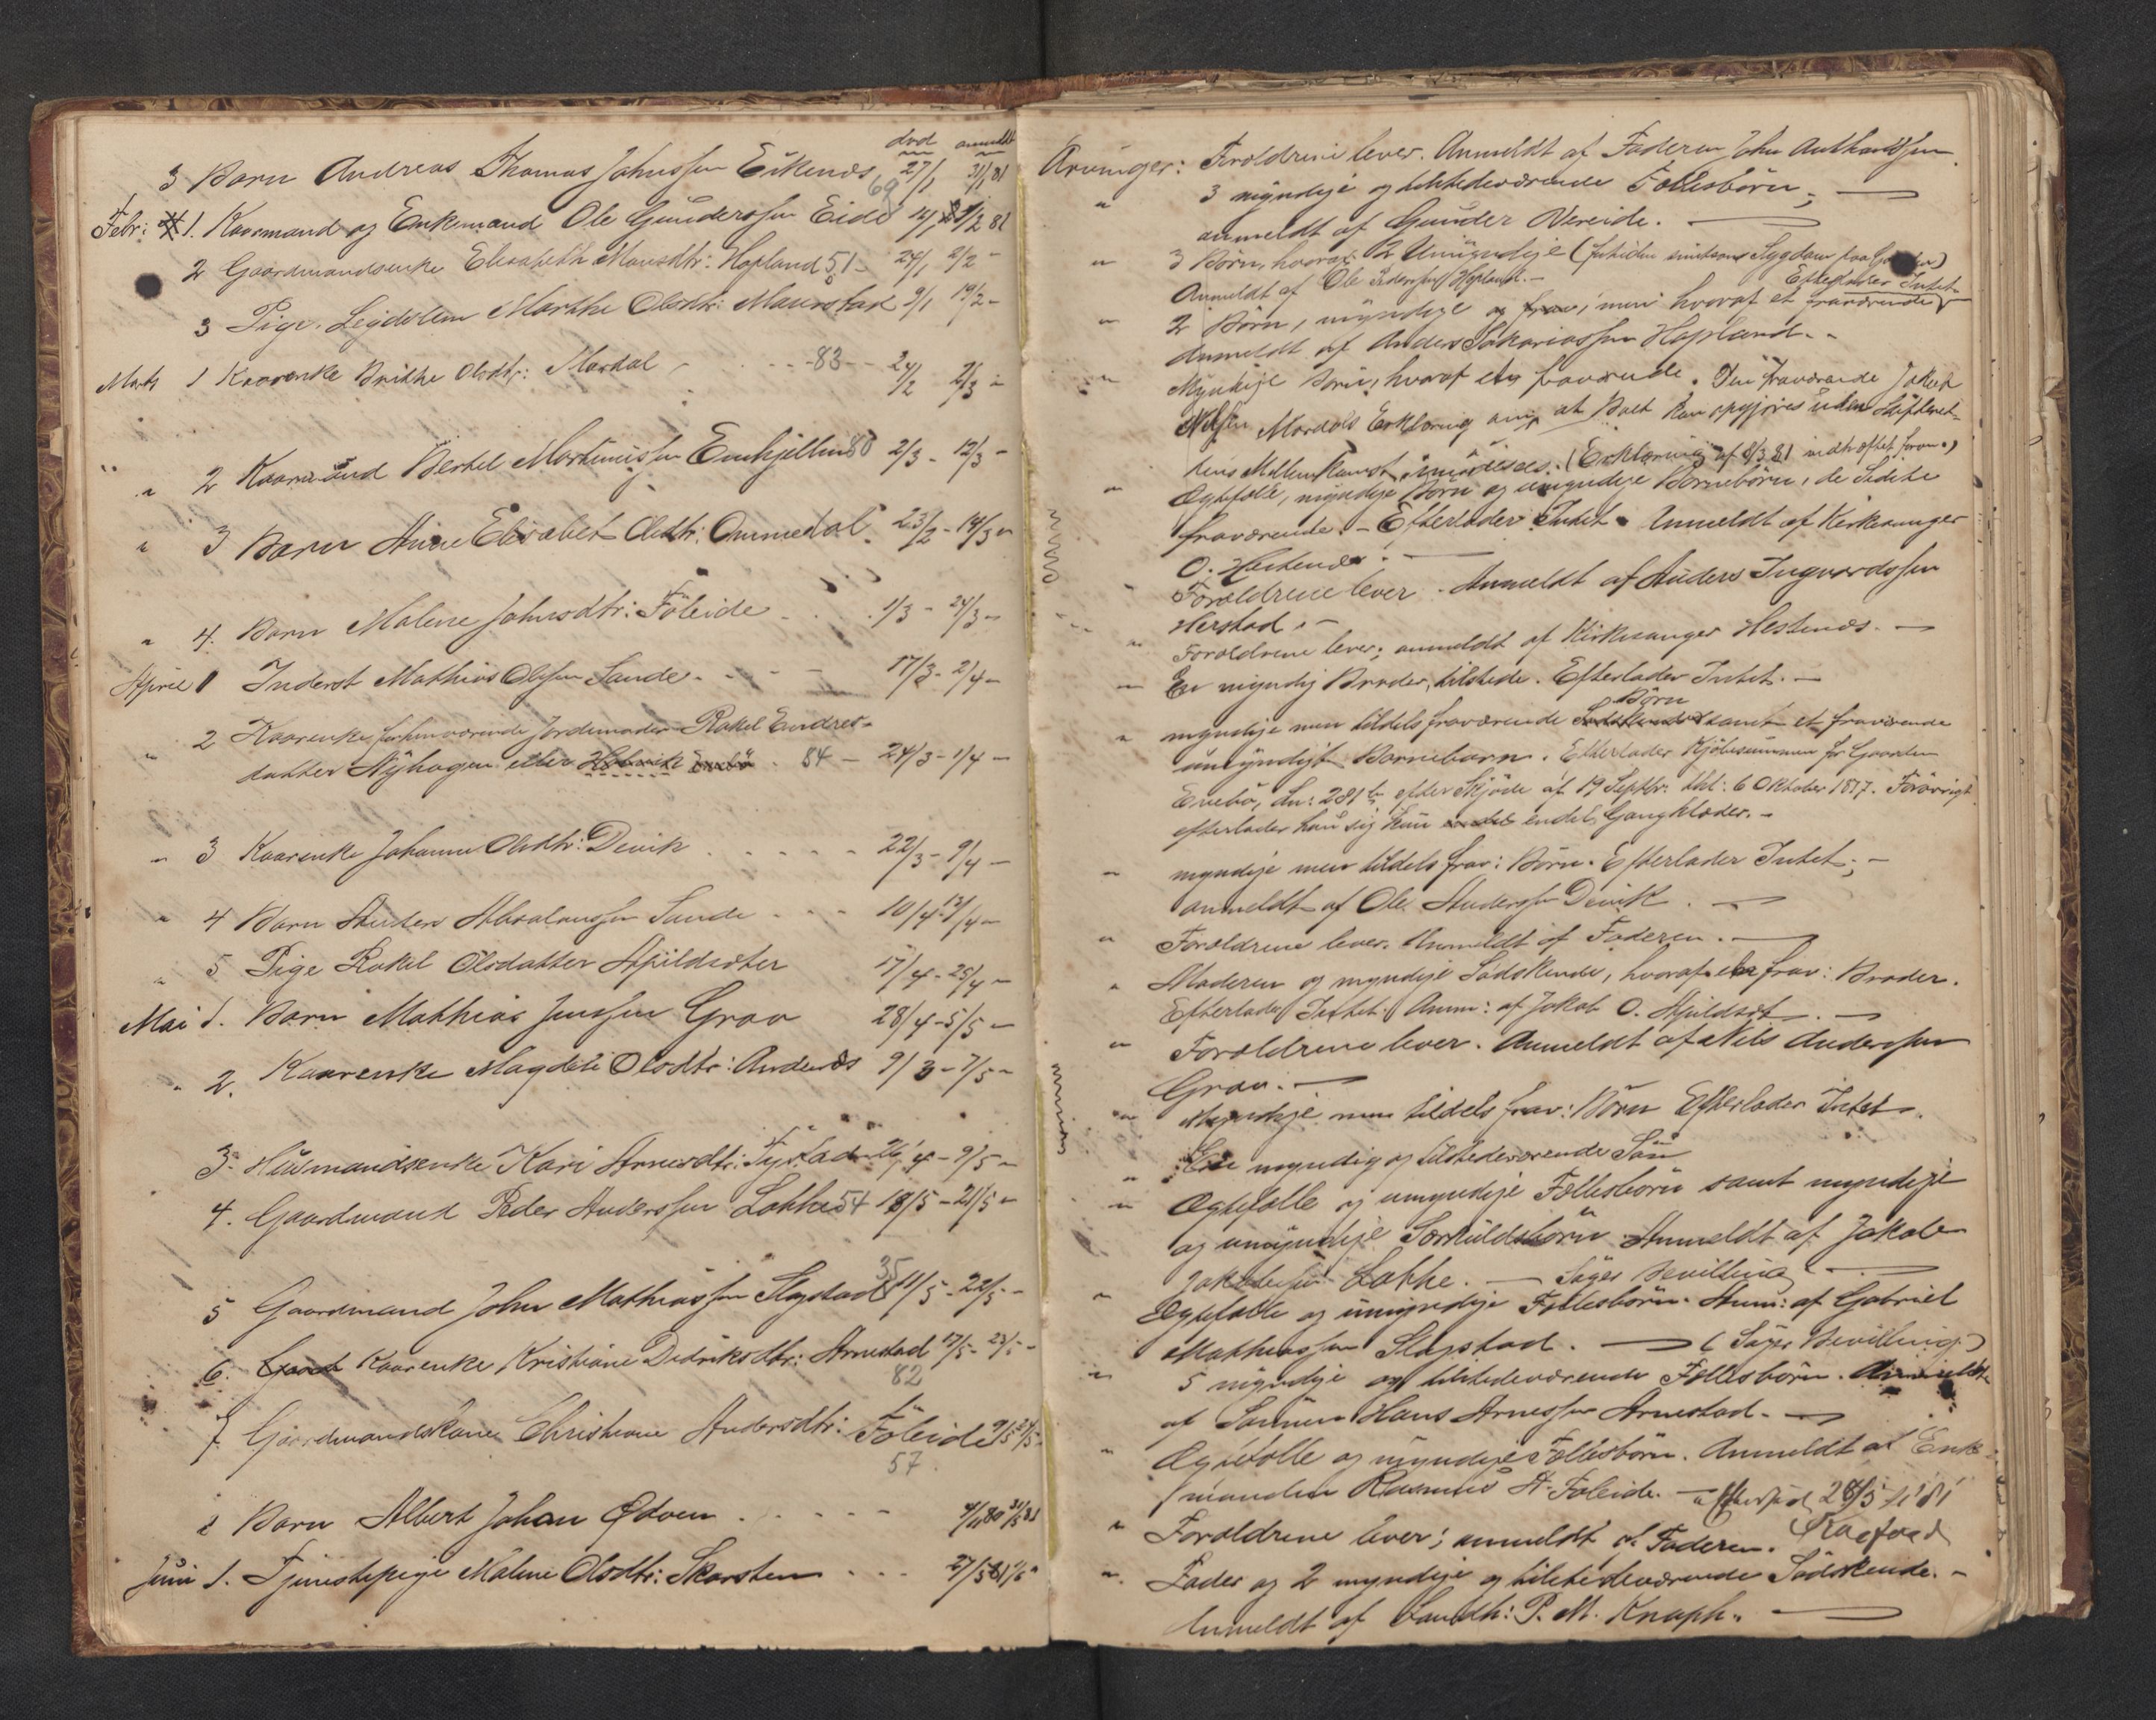 død anmeldt
3 Barn Andreas Thomas Johnssen Eikenæs 27/1 31/1 81
Febr: 1. Kaarmand og Enkemand Ole Gunderssen Eide 69 14/1 1/2 81
2 Gaardmandsenke Elisabeth Monsdtr: Hopland 51 - 24/1 2/2 -
3 Pige, Lægdslem Marthe Olsdtr: Maurstad 9/1 19/2 -
Marts 1 Kaarenke Brithe Olsdtr: Mardal - 83 - 24/2 2/3 -
" 2 Kaarmand Bertel Mortinussen Emhjellen 80 2/3 - 12/3 -
" 3 Barn Anne Elisabet Olsdtr: Ommedal 23/2 - 19/3 -
" 4. Barn Malene Johnsdtr: Föleide 1/3 - 24/3 -
April 1 Inderst Mathias Olssen Sande 17/3 - 2/4 -
" 2 Kaarenke, forhenværende Jordemoder Rakel Endres-
datter Nyhagen eller 84 - 24/3 - 1/4 -
" 3 Kaarenke Johanne Olsdtr: Devik 22/3 - 9/4 -
" 4 Barn Anders Absalonssen Sande 10/4 13/4 -
" 5 Pige Rakel Olsdatter Apildsæter 17/4 - 25/4 -
Mai 1. Barn Mathias Jenssen Grov 28/4 - 5/5 -
" 2. Kaarenke Magdeli Olsdtr: Andenæs 9/3 - 7/5 -
3. Husmandsenke Kari Arnesdtr: 26/4 - 9/5 -
4. Gaardmand Peder Anderssen Lothe 54 18/5 - 21/5 -
5 Gaardmand John Mathiassen Slagstad 35 11/5 - 22/5 -
6. Gaard Kaarenke Kristiane Didriksdtr: Arnestad 82 17/5 - 23/5 -
7. Gaardmandskone Christiane Andersdtr: Föleide 57
8 Barn Albert Johan Ødven 31/5 81
Juni 1. Tjenestepige Malene Olsdtr: Skarsten 27/5 81 1/6 "
Arvinger: Forældrene lever. Anmeldt af Faderen John Anthonssen
" 3 myndige og tilstedeværende Fællesbörn;
anmeldt af Gunder Nereide.
" 3 Börn, hvoraf 2 Umyndige
Anmeldt af Ole Hopland. -
Efterlader Intet
" 2 Börn, myndige men hvoraf et fraværende
Anmeldt af Anders Sakariassen Hopland. -
" Myndige Börn, hvoraf et fraværende. Den fraværende Jakob
Mardals Erklæring om, at Boet kan opgjöres uden Skifteret-
tens Mellemkomst, (Erklæring af 8/3 81 )
" Ægtefælle, myndige Börn og umyndige Börnebörn, de Sidste
fraværende. - Efterlader Intet. Anmeldt af Kirkesanger
O. Hestenæs.
" Forældrene lever. Anmeldt af Anders Ingvardssen
Herstad. -
" Forældrene lever; anmeldt af Kirkesanger Hestenæs. -
" En myndig Broder, tilstede. Efterlader Intet. -
Börn
" myndige men tildels fraværende samt et fraværende
umyndigt Barnebarn. Efterlader Kjöbesummen for Gaarden
Enebö, Ln: 281 b efter Skjöde af 19 Septbr: thl: 6 Oktober 1877. Forövrigt
efterlader hun sig kun endel Gangklæder. -
" myndige men tildels frav: Börn. Efterlader Intet; -
anmeldt af Ole Anderssen Devik.
" Forældrene lever. Anmeldt af Faderen.
" Moderen og myndige Södskende, hvoraf en frav: Broder.
Efterlader Intet. Anm: af Jakob O. Apildsæt. -
" Forældrene lever. Anmeldt af Nils Anderssen
Grov. -
" Myndige men tildels frav: Börn Efterlader Intet.
" En myndig og tilstedeværende Sön
" Ægtefælle og umyndige Fællesbörn samt myndige
og umyndige Særkuldsbörn. Anmeldt af Jakob
Lothe. - Söger Bevilling
" Ægtefælle og umyndige Fællesbörn. Anm: af Gabriel
Mathiassen Slagstad. - (Söger Bevilling.)
" 5 myndige og tilstedeværende Fællesbörn. Anmeldt
af Sönnen Hans Arnessen Arnestad. -
" Ægtefælle og myndige Fællesbörn. Anmeldt af Enke-
manden Rasmus A. Föleide. - 28/5 81
" Forældrene lever; anmeldt af Faderen.
" Fader og 2 myndige og tilstedeværende Södskende. -
Anmeldt af Landh: P. M. Knaph.